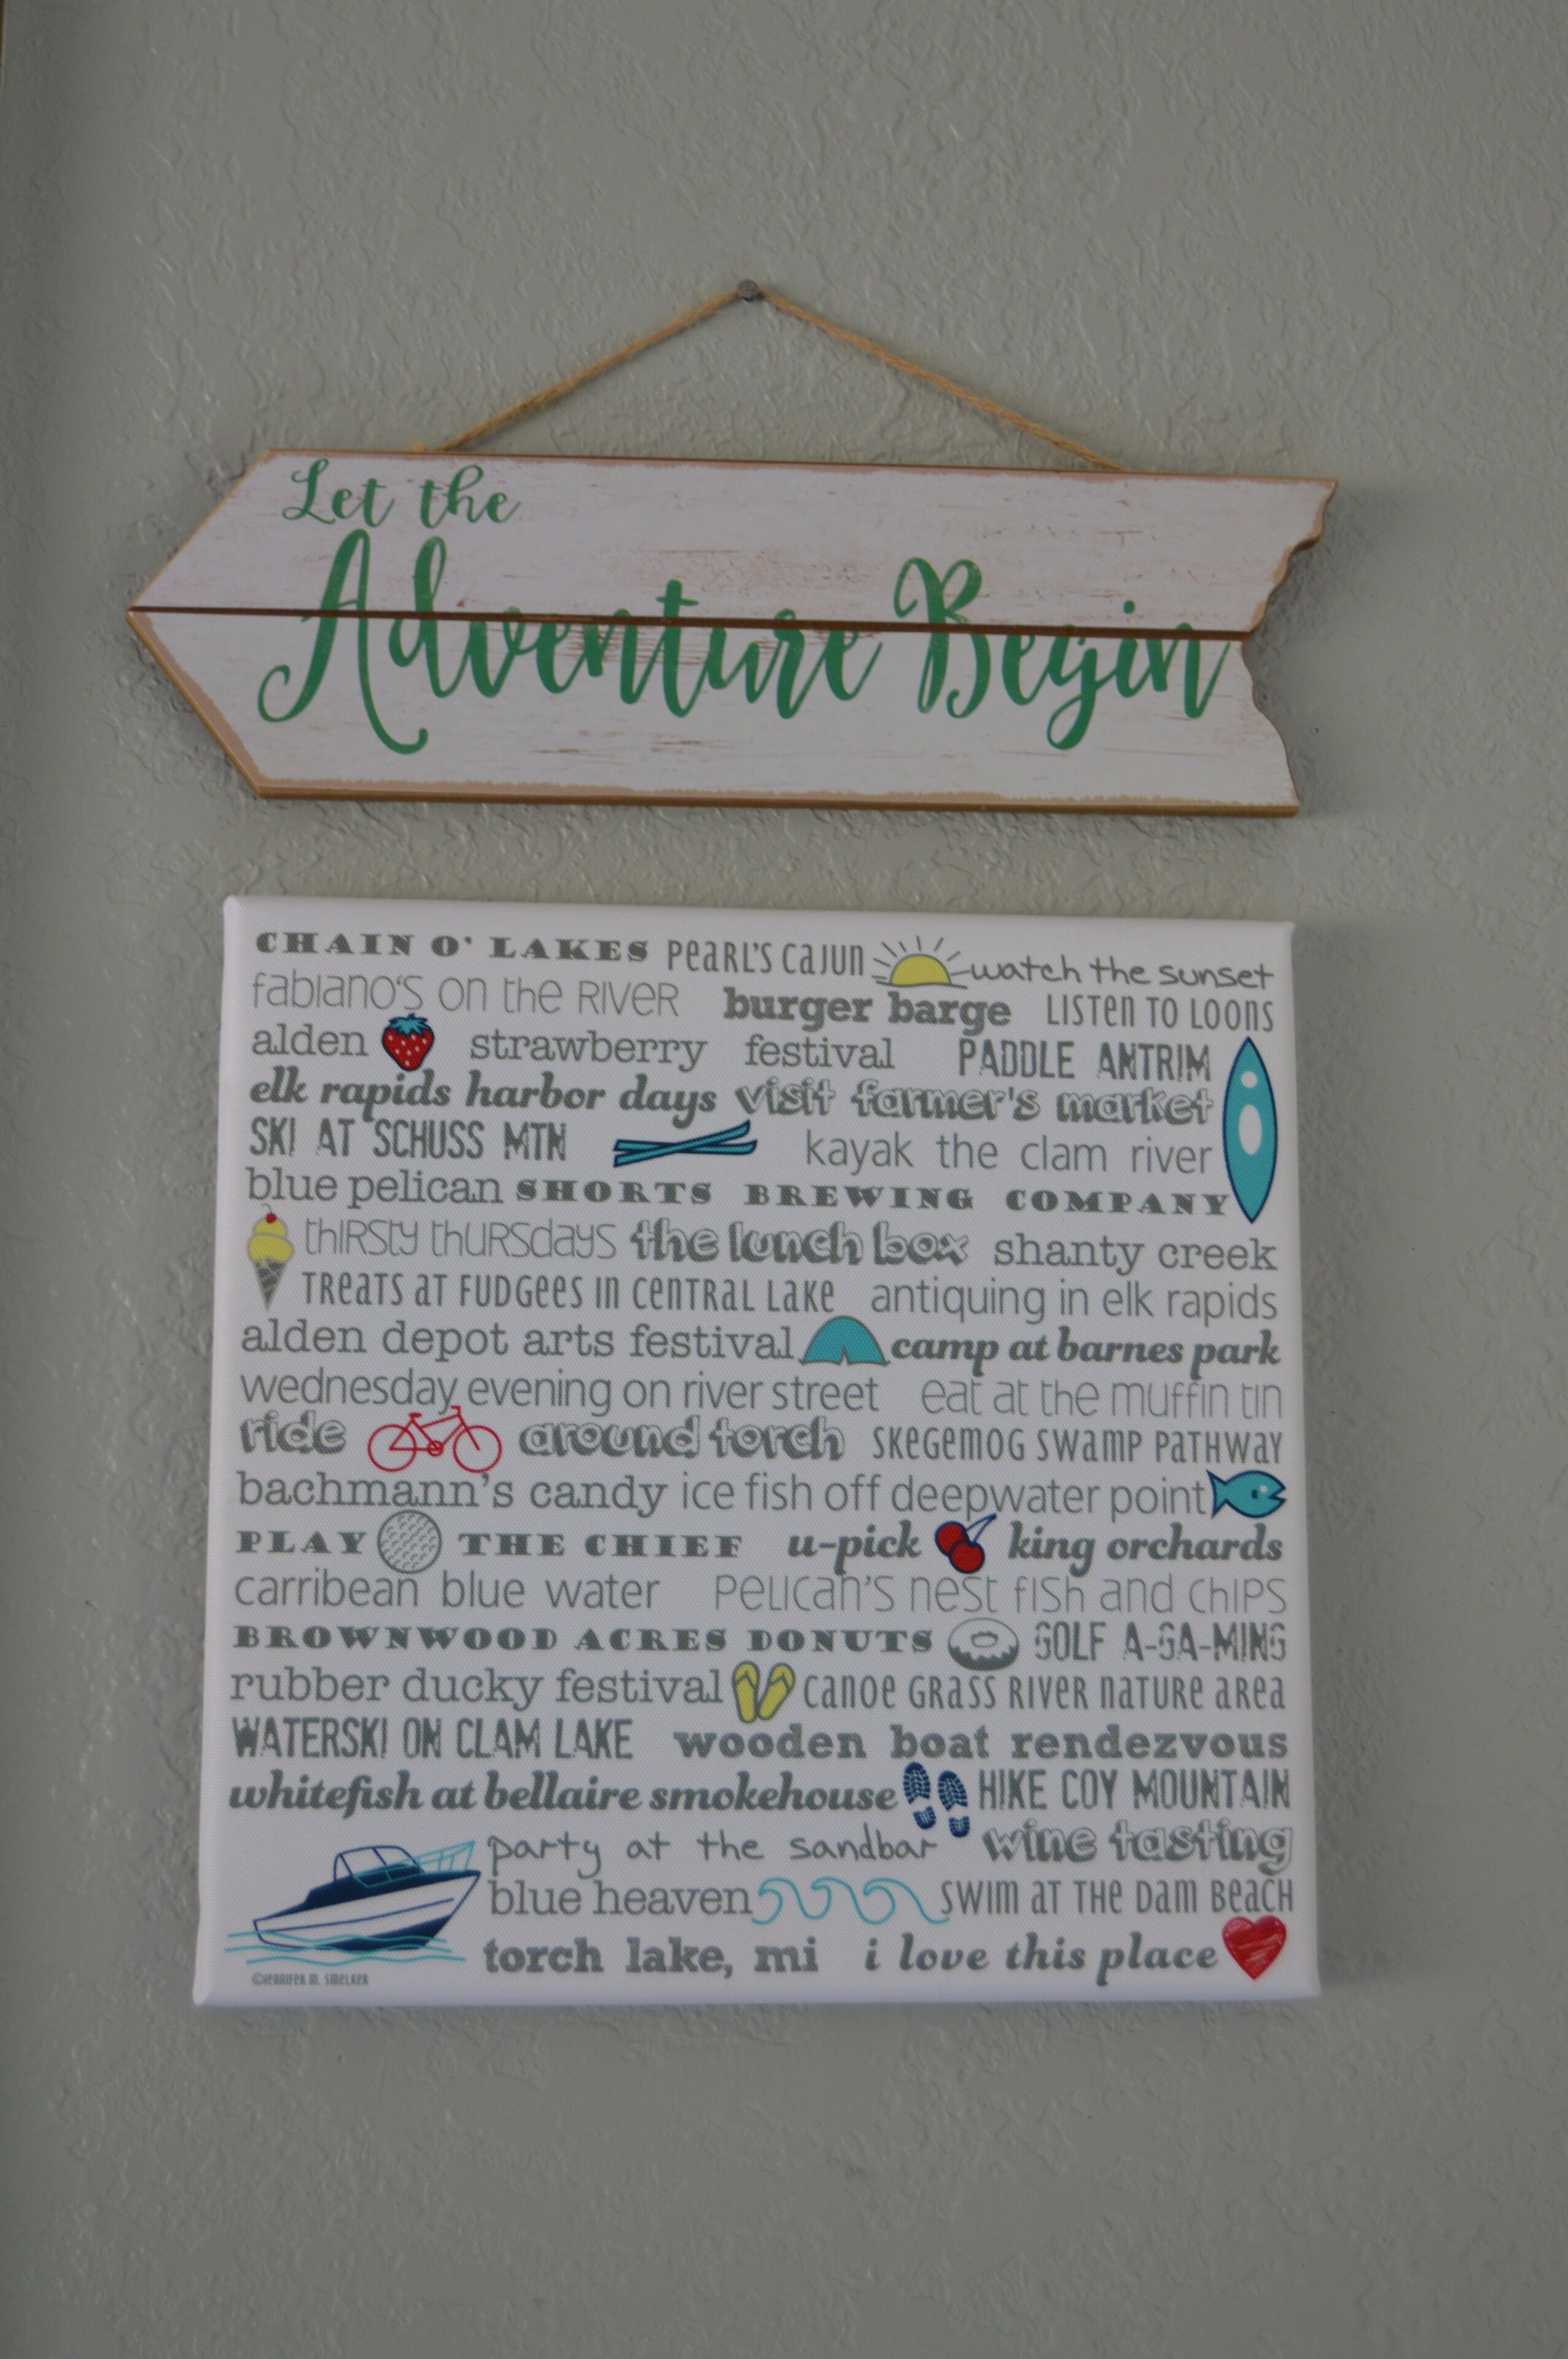 Let the
Adventure Begin
CHAIN O' LAKES PEARL'S CAJUN watch the sunset
fabiano's on the RIVER burger barge LISTEN TO LOONS
alden strawberry festival PADDLE ANTRIM
elk rapids harbor days visit farmer's market
SKI AT SCHUSS MTN kayak the clam river
blue pelican SHORTS BREWING COMPANY
thirsty thursdays the lunch box shanty creek
TREATS AT FUDGEES IN CENTRAL LAKE antiquing in elk rapids
alden depot arts festival camp at barnes park
wednesday evening on river street eat at the muffin tin
ride around torch SKEGEMOG SWAMP PATHWAY
bachmann's candy ice fish off deepwater point
PLAY THE CHIEF u-pick king orchards
carribean blue water PELICAN'S nest fish and chips
BROWNWOOD ACRES DONUTS GOLF A-GA-MING
rubber ducky festival CANOE GRASS RIVER NATURE AREA
WATERSKI ON CLAM LAKE wooden boat rendezvous
whitefish at bellaire smokehouse HIKE COY MOUNTAIN
party at the sandbar wine tasting
blue heaven SWIM AT THE DAM BEACH
torch lake, mi i love this place
©JENNIFER M. SMELKER